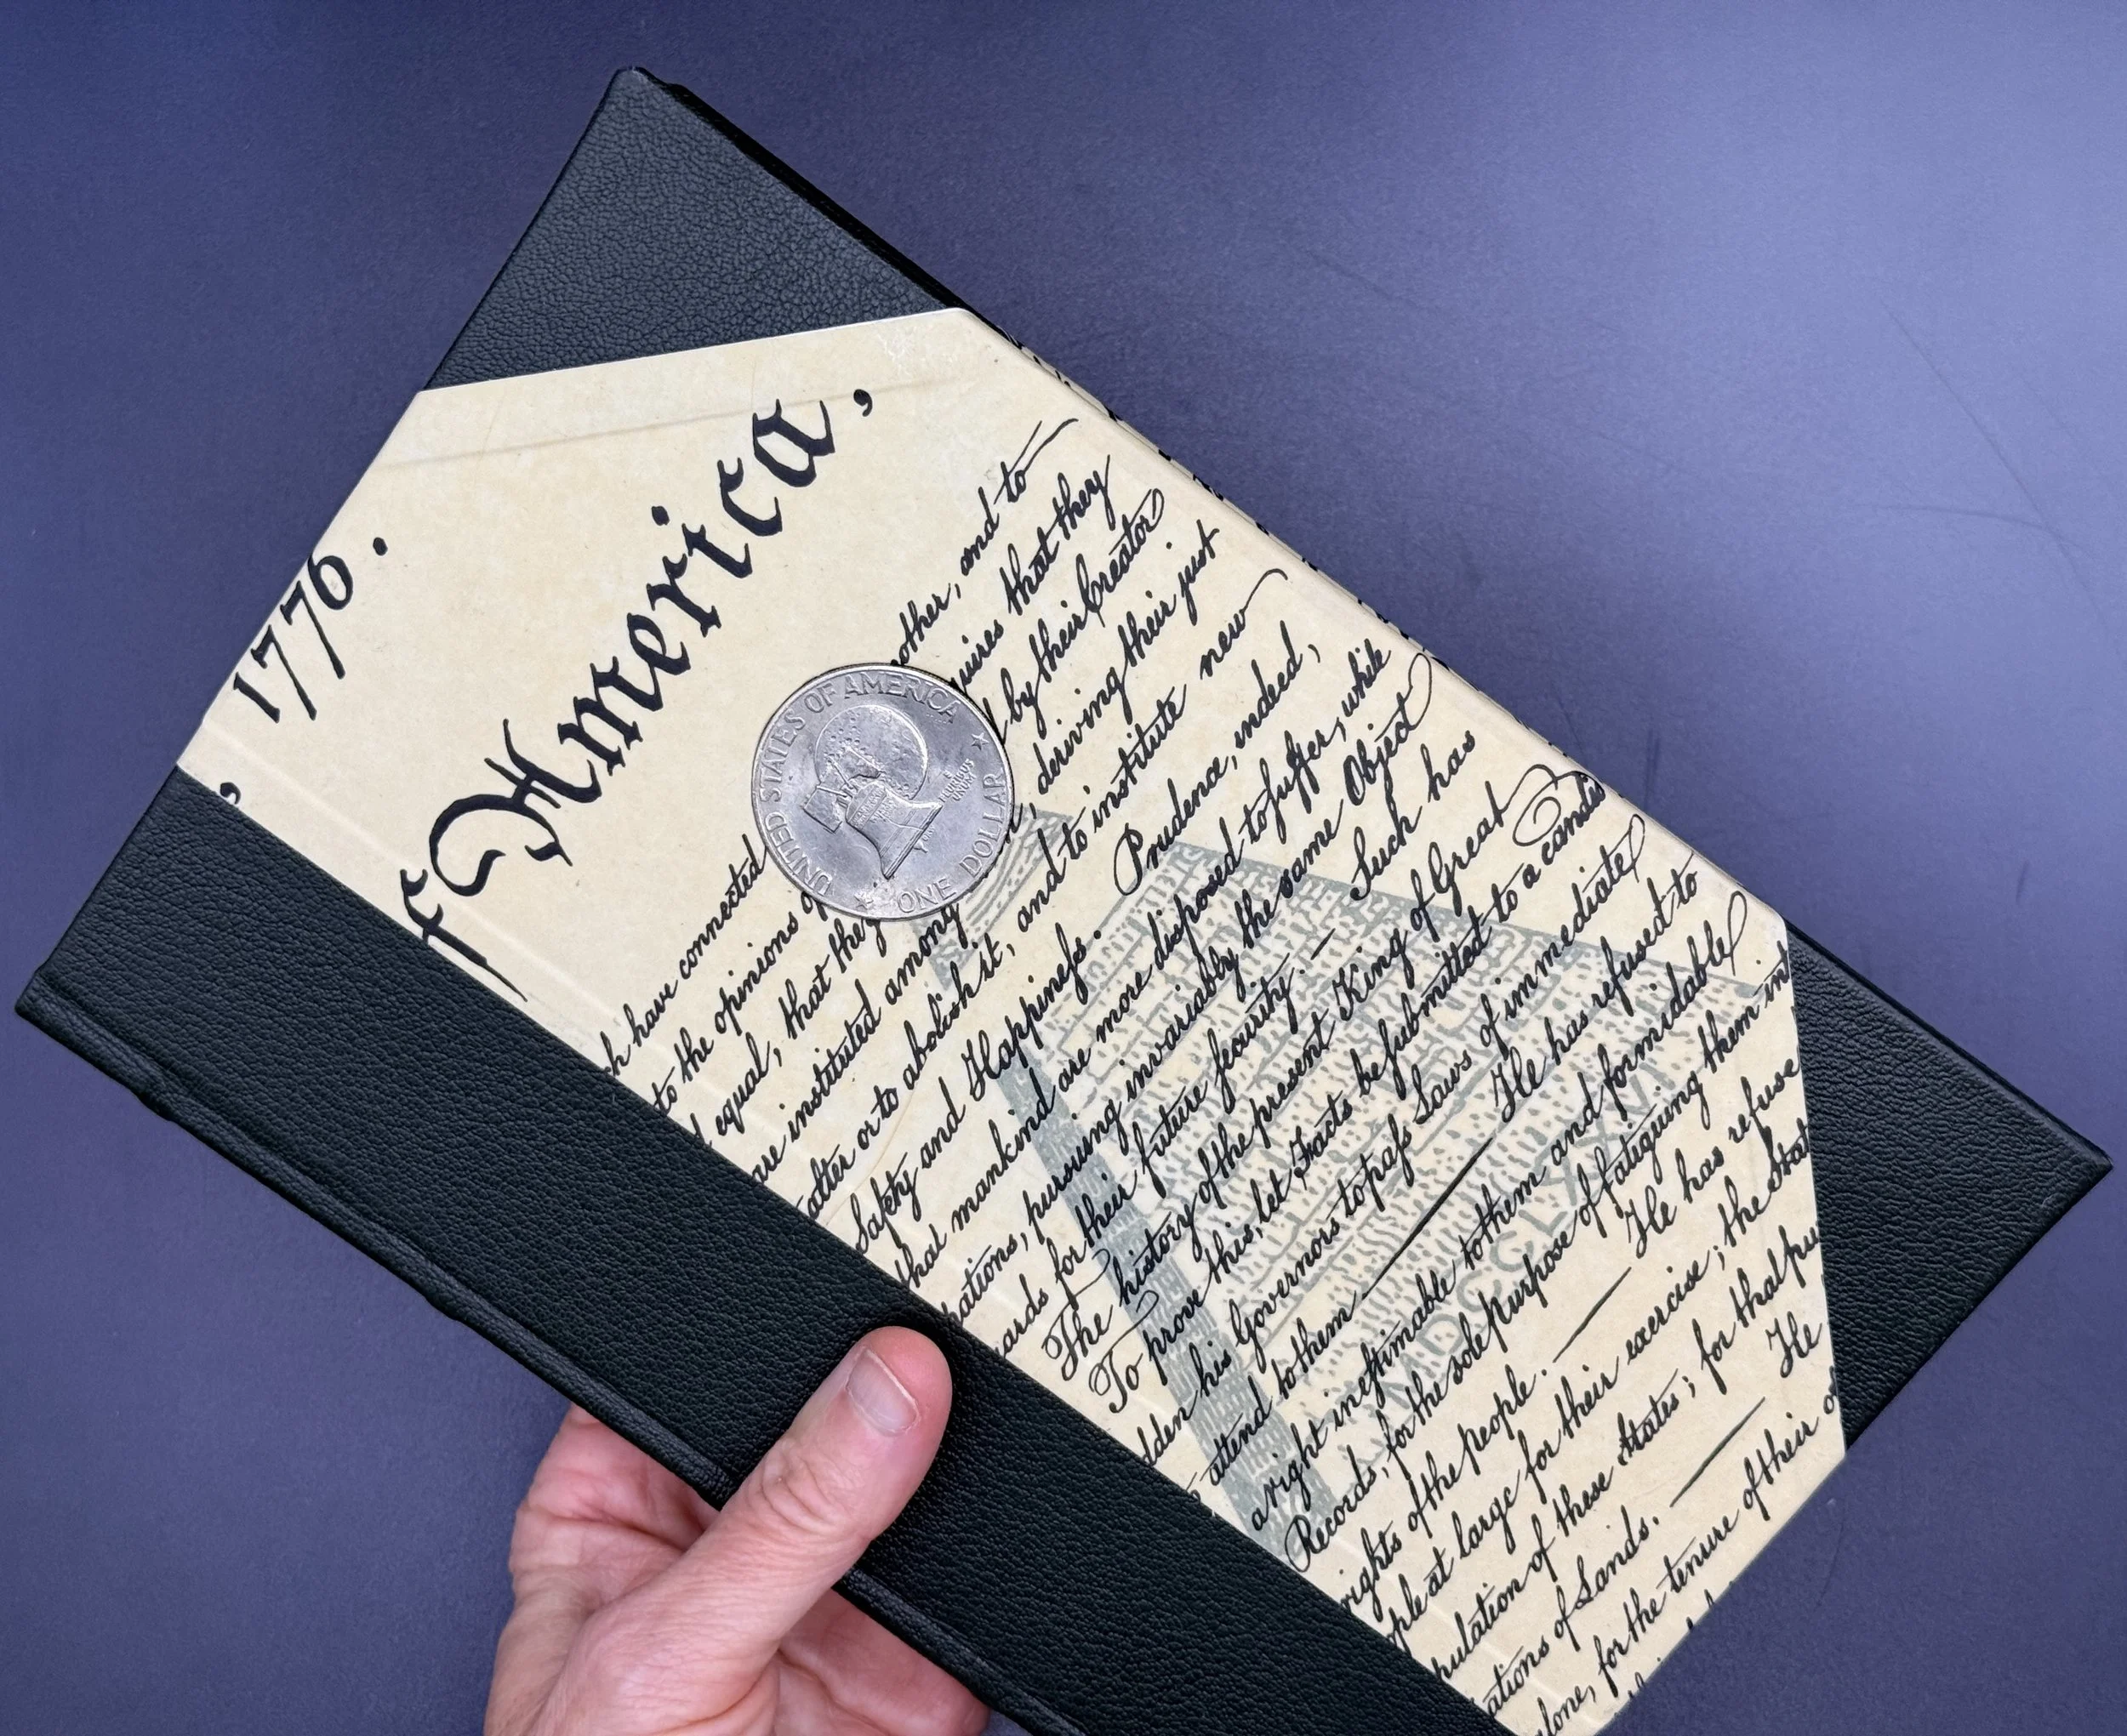 1776.
,
f America,
other, and to
quires that they
h have connected by their Creator
to the opinions of deriving their just
equal, that they
are instituted among and to institute new
alter or to abolish it, Prudence, indeed,
Safety and Happineſs. are more diſposed to ſuffer, while
that mankind invariably the same Object
pursuing Such has
for their future ſecurity. —
The history of the present King of Great
To prove this, let Facts be ſubmitted to a candid
his Governors to paſs Laws of immediate
attend to them He has refused to
a right ineſtimable to them and formidable .
Records, for the sole purpose of fatiguing them in
rights of the people. He has refuse
at large for their exercise; the Stat
of these States; for that pu
of Lands. He
for the tenure of their o
UNITED STATES OF AMERICA
E PLURIBUS UNUM
ONE DOLLAR
MDCCLXXVI